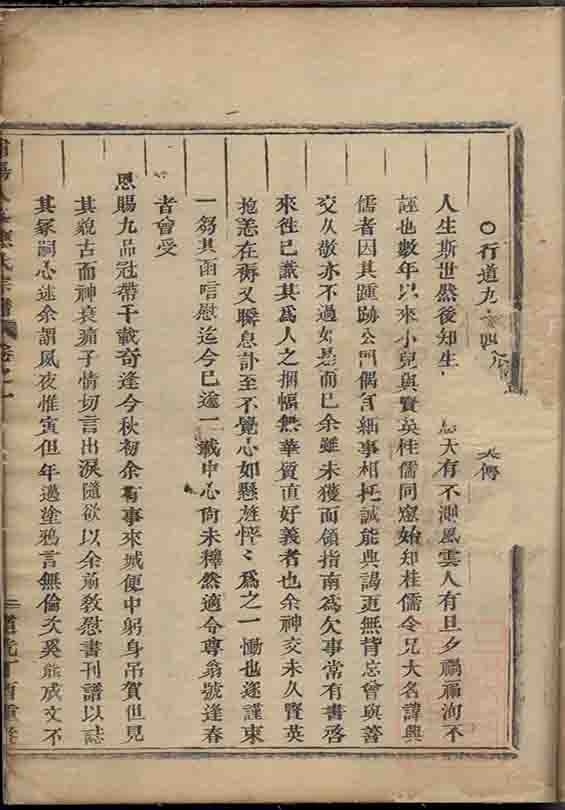 ○行道九
人生斯世然後知生 大有不測風雲人有旦夕禍福洵不
誣也數年以來小兒與賢英桂儒同窓始知桂儒令兄大名諱興
儒者因其踵跡公門偶有細事相托誠能與謁更無背忘曾與善
交久敬亦不過如是而已余雖未獲面領指南爲欠事常有書啓
來往已識其爲人之悃愊無華質直好義者也余神交未久賢英
抱恙在蓐又瞬息訃至不覺心如懸旌悴〻爲之一慟也遂謹束
一芻其函唁慰迄今已逾一載中心尙未釋然適令尊翁號逢春
者曾受
恩賜九品冠帶千載奇逢今秋初余有事來城便中躬身吊賀但見
其貌古而神衰痛子情切言出淚隨欲以余前敎慰書刊譜以誌
其冢嗣心迷余謂夙夜惟寅但年邁塗鴉言無倫次奚能成文不
氏宗譜 卷之一 道光丁酉重修